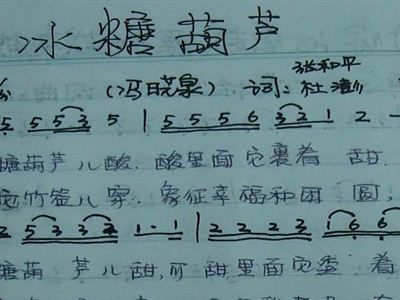 冰糖葫芦
张和平
分 (冯晓泉) 词: 杜澍
5 5 5 3 5 | 5 5 5 6 3 2 1 2 —
糖葫芦儿酸. 酸里面它裹着 甜.
竹签儿穿. 象征幸福和团 圆,
2 5 3 3 2 1·1 | 2 2 2 3 1 6 6
糖葫 芦儿甜,可 甜里面它 着